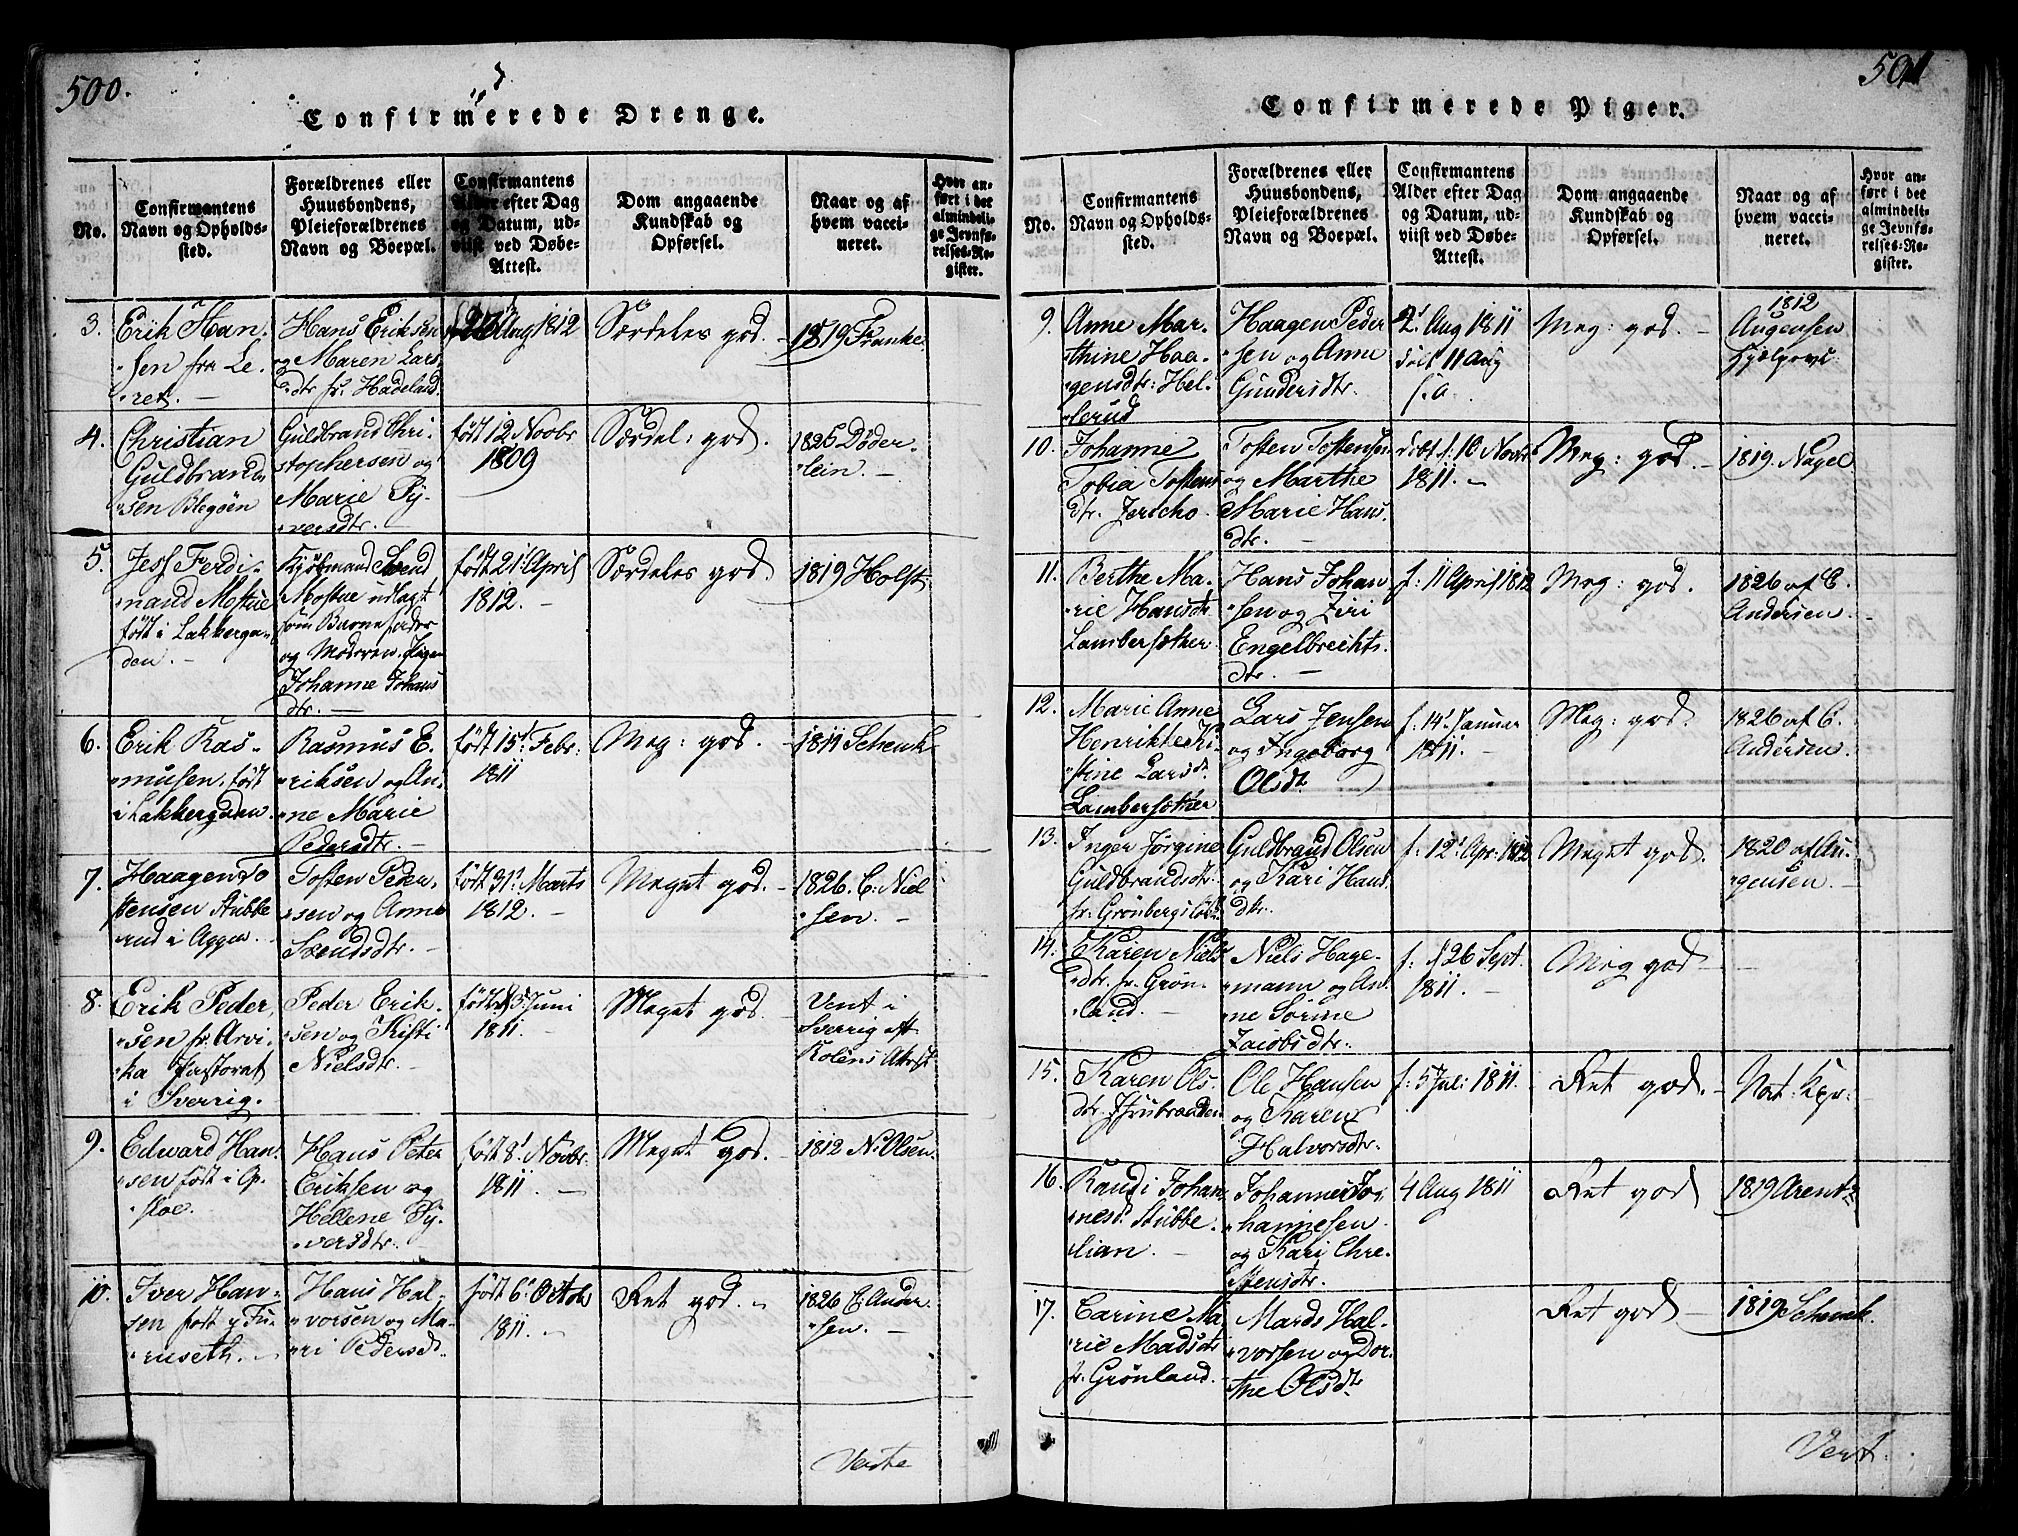 500.
Confirmerede Drenge.
No.
Confirmantens
Navn og Opholds-
sted.
Forældrenes eller
Huusbondens,
Pleieforældrenes
Navn og Boepæl.
Confirmantens
Alder efter Dag
og Datum, ud-
viist ved Døbe-
Attest.
Dom angaaende
Kundskab og
Opførsel.
Naar og af
hvem vacci-
neret.
Hvor an-
ført i det
almindeli-
ge Jevnfø-
relses-Re-
gister.
3.
Erik Han-
sen fra Le-
ret. —
Hans Eriksen
og Maren Lars
dtr fr. Hadeland.
Aug 1812
Særdeles god. —
1819 Franke.
4.
Christian
Guldbrand
sen Blegøen
Guldbrand Chri-
stophersen og
Marie Sy-
versdtr. —
født 12 Novbr
1809
Særdel: god.
1826 Døder
lein. —
5.
Jess Ferdi-
nand Mostue
født i Lakkerga-
den. —
Kjøbmand Svend
Mostue udlagt
som Barnefader
og Moderen Pigen
Johanne Johans
dtr. —
født 21' April
1812. —
Særdeles god.
1819 Holst.
6.
Erik Ras-
musen, født
i Lakkergaden.
Rasmus E-
riksen og An-
ne Marie
Pedersdtr. —
født 15' Febr:
1811
Meg: god. —
1811 Schenk
7.
Haagen To
stensen Stubbe
rud i Agger. —
Tosten Peder-
sen og Anne
Svendsdtr. —
født 31' Marts
1812. —
Meget god. —
1826. C: Niel
sen. —
8.
Erik Peder,
sen fr. Arvi-
ka Pastorat
i Sverrig.
Peder Erik-
sen og Kisti
Nielsdtr. —
født 3' Juni
1811.
Meget god.
Vent i
Sverrig eft.
Koléns Attest
9.
Edward Han-
sen født i Op-
sloe.
Hans Peter
Eriksen og
Hellene Sy-
versdtr.
født 8' Novbr.
1811. —
Meget god.
1812 N: Olsen
10.
Iver Han-
sen født y Fu-
ruseth. —
Hans Hal-
vorsen og Ma-
ri Pedersdt.
født 6' Octob
1811. —
Ret god. —
1826 C: Ander
sen. —
Verte
501
Confirmerede Piger.
No.
Confirmantens
Navn og Opholds-
sted.
Forældrenes eller
Huusbondens,
Pleieforældrenes
Navn og Boepæl.
Confirmantens
Alder efter Dag
og Datum, ud-
viist ved Døbe-
Attest.
Dom angaaende
Kundskab og
Opførsel.
Naar og af
hvem vacci-
neret.
Hvor an-
ført i det
almindeli-
ge Jevnfø-
relses-Re-
gister.
9.
Anne Mar-
thine Haa-
gensdtr: Hel-
lerud
Haagen Peder
sen og Anne
Gundersdtr.
2' Aug 1811
døbt 11 Aug
s. a.
Meg: god. —
1812
Augensen
10.
Johanne
Tobia Tostens
dtr. Jericho.
Tosten Tostensen
og Marthe
Marie Hans
dtr. —
døbt f: 10 Novbr
1811. —
Meg: god. —
1819. Nagel
11.
Berthe Ma-
rie Hansdtr
Lambersæther
Hans Johan
sen og Ziri
Engelbrechts
dtr. —
f: 11 April 1812
Meg: god.
1826 af C.
Andersen. —
12.
Marie Anne
Henrikke Ki
stine Larsdt.
Lambersæther
Lars Jensen
og Ingeborg
Olsdt.
f: 14' Januar
1811. —
Meg: god.
1826 af C.
Andersen. —
13.
Inger Jørgine
Guldbrandsdtr.
fr: Grønberg i
Guldbrand Olsen
og Kari Hans
dtr.
f: 12' Apr: 1812
Meget god.
1820 af Au-
gensen. —
14.
Karen Niels
dtr. fr. Grøn-
land. —
Niels Hage-
mann og An-
ne Sørine
Jacobsdtr. —
f: 26 Sept.
1811. —
Meg god —
—
15.
Karen Ols-
dtr.
Ole Hansen
og Karen
Halvorsdtr.
f: 5' Jul: 1811.
Ret god. —
Nat: Kpr. —
16.
Randi Johan-
nesd. Stubbe-
lian. —
Johannes Jo-
hannesen
og Kari Chre-
stensdtr.
4 Aug 1811
Ret god
1819 Arentz
17.
Carine Ma-
rie Madsdtr
fr. Grønland. —
Mads Hal-
vorsen og Dor-
the Olsdt.
Ret god —
1819 Schenk.
Vert.